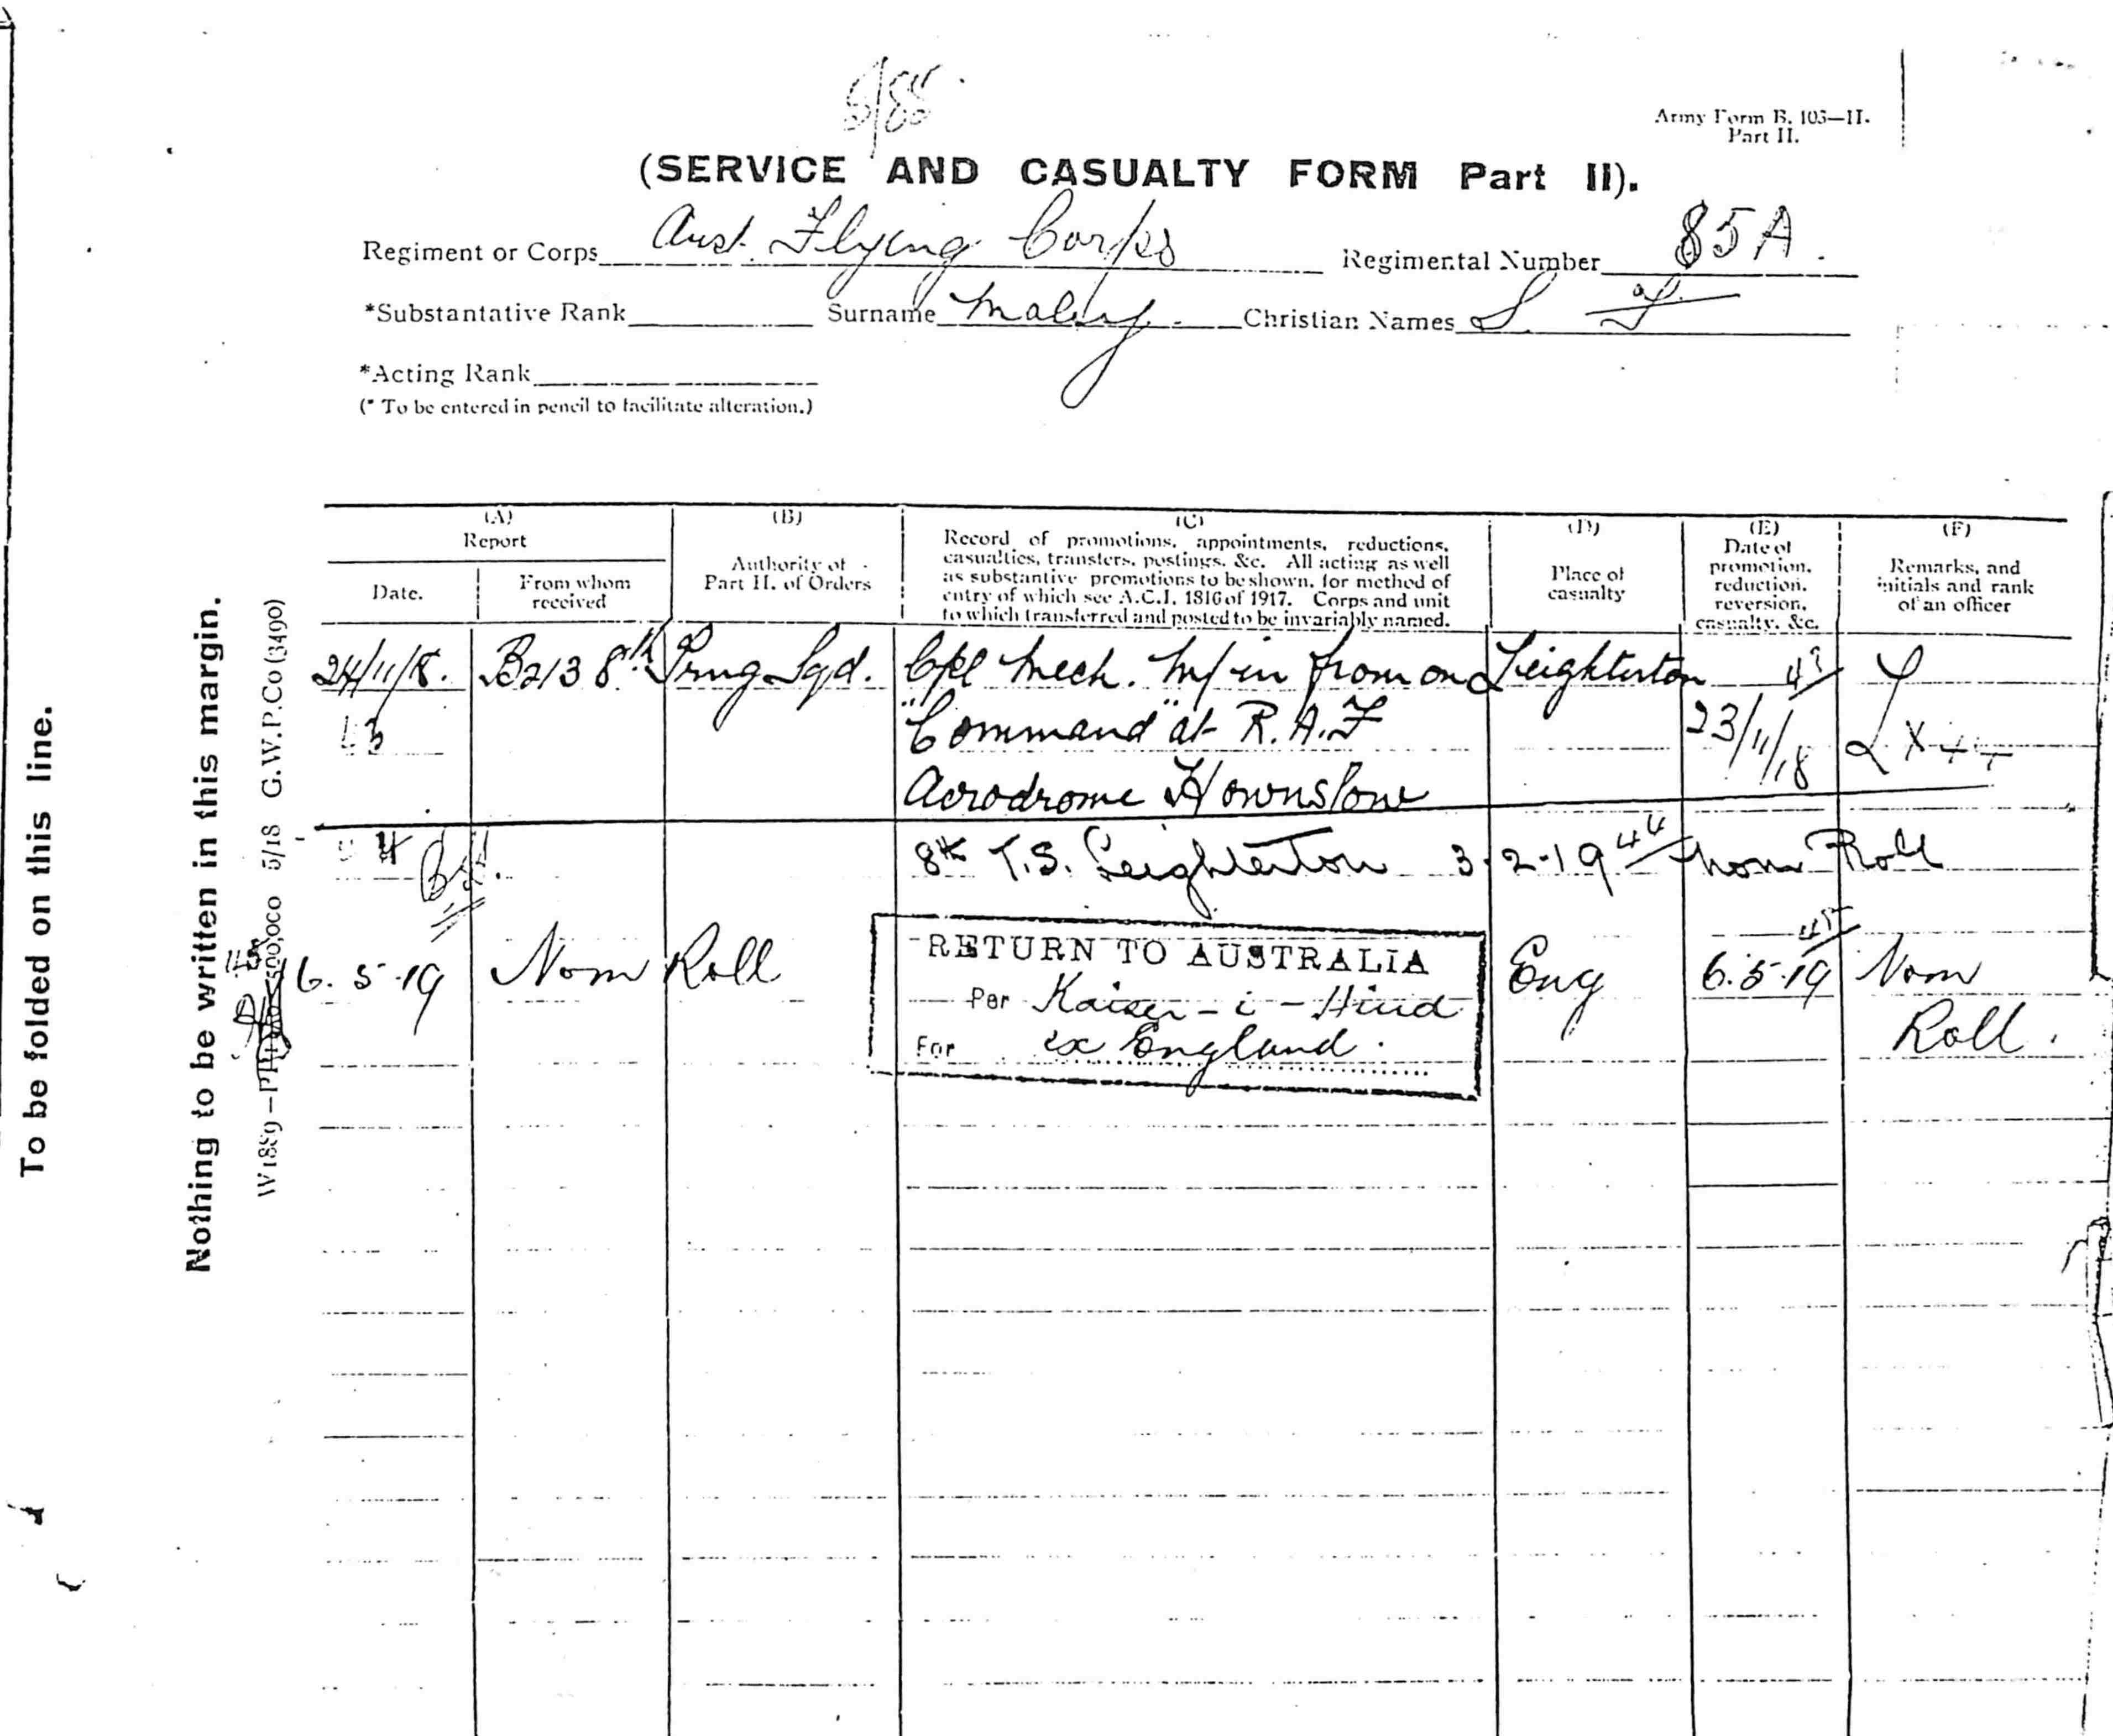 5/85
Army Form B. 103—II.
Part II.
(SERVICE AND CASUALTY FORM Part II).
Regiment or Corps Aust. Flying Corps Regimental Number 85A.
*Substantative Rank Surname Maley. Christian Names S.
*Acting Rank
(* To be entered in pencil to facilitate alteration.)
To be folded on this line.
Nothing to be written in this margin.
G.W.P.Co (3490)
5/18
(A)
Report
Date.
From whom
received
(B)
Authority of
Part II. of Orders
(C)
Record of promotions, appointments, reductions,
casualties, transfers, postings, &c. All acting as well
as substantive promotions to be shown, for method of
entry of which see A.C.I. 1816 of 1917. Corps and unit
to which transferred and posted to be invariably named.
(D)
Place of
casualty
(E)
Date of
promotion,
reduction,
reversion,
casualty, &c.
(F)
Remarks, and
initials and rank
of an officer
24/11/8. B213 8th Trng Sqd. Cpl Mech. M/in from on Leighterton 43
"Command" at R.A.F 23/11/18
Aerodrome Hownslow
8th T.S. Leighterton 3.2.19 44 Nom Roll
RETURN TO AUSTRALIA 45
6.5.19 Nom Roll Per Kaiser-i-Hind Eng 6.5.19 Nom
For ex England. Roll.